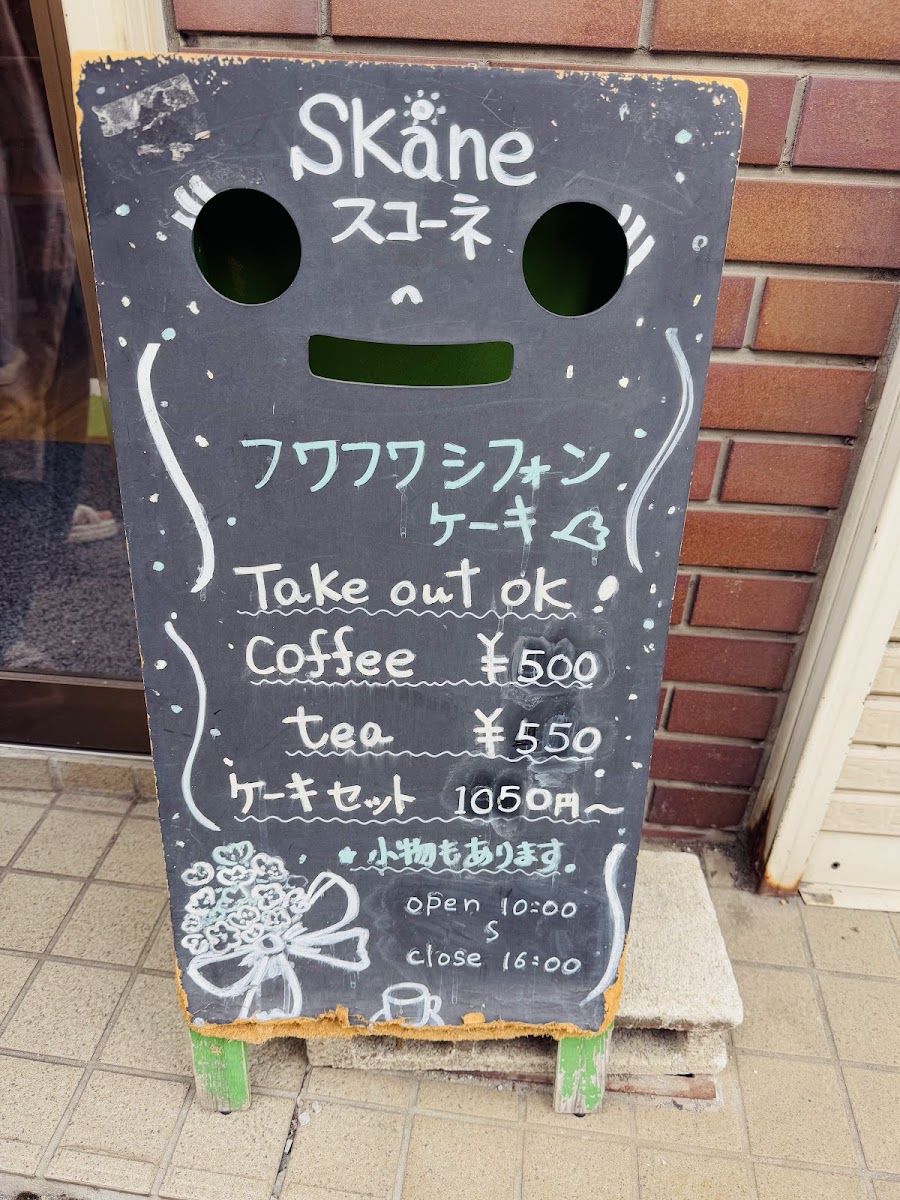 Skåne
スコーネ
フワフワシフォン
ケーキ
Take out ok!
Coffee ¥500
tea ¥550
ケーキセット 1050円〜
★小物もあります。
open 10:00
〜
close 16:00